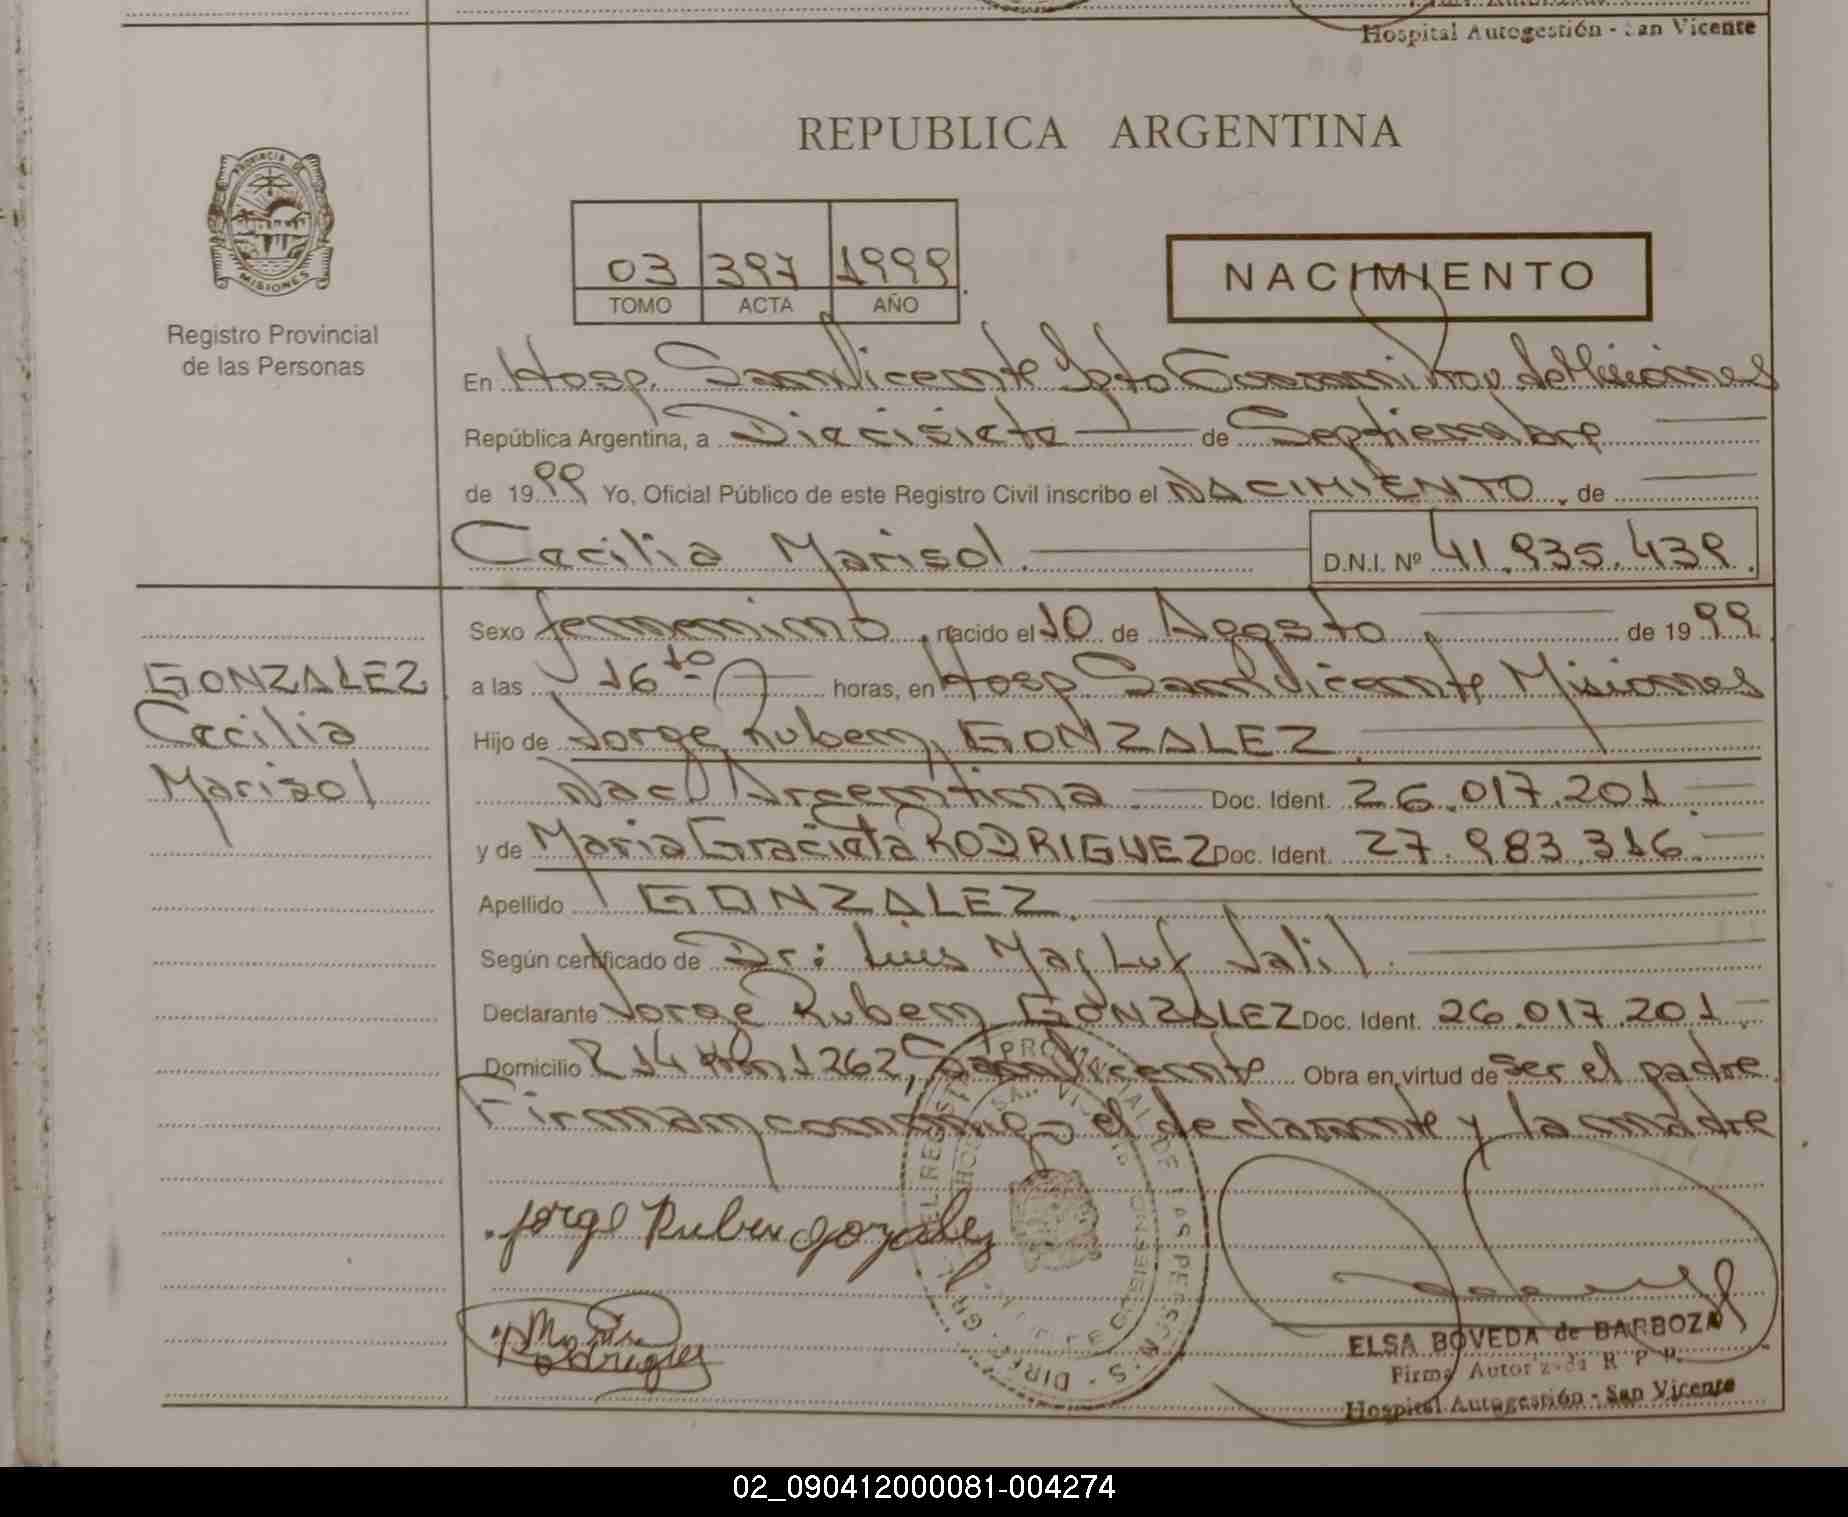 Hospital Autogestión - San Vicente
REPUBLICA ARGENTINA
PROVINCIA DE
MISIONES
Registro Provincial
de las Personas
03 397 1999
TOMO ACTA AÑO
NACIMIENTO
En Hosp. San Vicente Dpto Guarani Prov. de Misiones
República Argentina, a Diecisiete de Septiembre
de 1999 Yo, Oficial Público de este Registro Civil inscribo el NACIMIENTO, de
Cecilia Marisol. D.N.I. Nº 41.935.439.
Sexo femenino, nacido el 10 de Agosto, de 1999
a las 16 10 horas, en Hosp San Vicente Misiones
GONZALEZ
Cecilia
Marisol
Hijo de Jorge Ruben, GONZALEZ
Nac. Argentina. Doc. Ident. 26.017.201
y de Maria Graciela RODRIGUEZ Doc. Ident. 27.983.316
Apellido GONZALEZ
Según certificado de Dr: Luis Jalil
Declarante Jorge Ruben GONZALEZ Doc. Ident. 26.017.201
Domicilio R 14 Km 1262, San Vicente Obra en virtud de ser el padre
Firman conmigo el declarante y la madre
Jorge Ruben gozalez
Rodriguez
ELSA BOVEDA de BARBOZA
Firma Autorizada R P P.
Hospital Autogestión - San Vicente
02_090412000081-004274